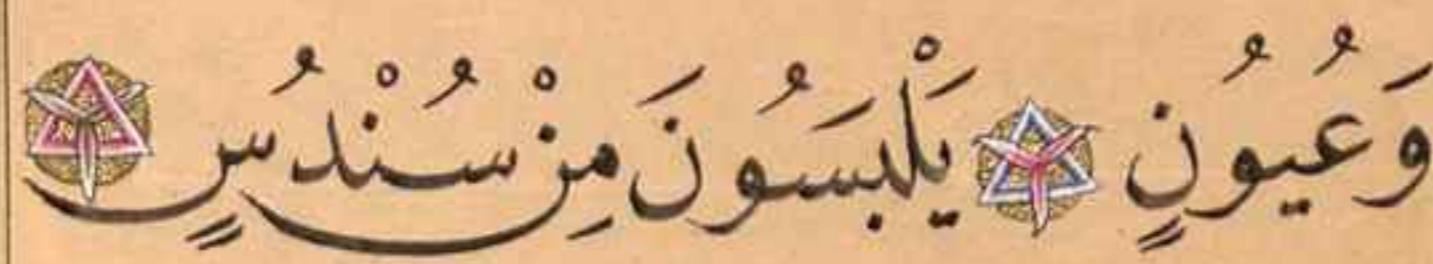 وَعُيُونٍ يَلْبَسُونَ مِنْ سُنْدُسٍ